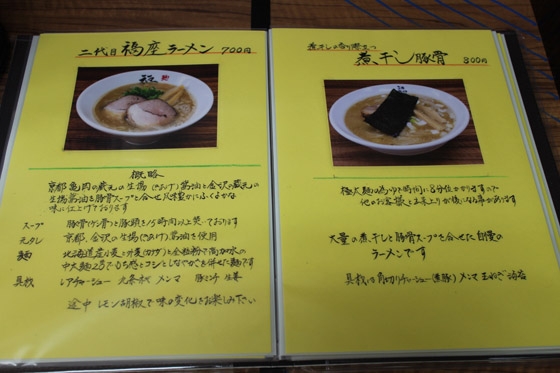 二代目 福座 ラーメン 700円
概略
京都 亀岡の蔵元の生揚(きあげ)醤油と金沢の蔵元の
生揚醤油を豚骨スープと合せ
味に仕上げております
スープ 豚骨(ゲンコツ)と豚頭を15時間以上炊いております
元タレ 京都、金沢の生揚(きあげ)醤油を使用
麺 北海道産小麦と
中太麺
具材 レアチャーシュー メンマ
途中 レモン胡椒で味の変化をお楽しみ下さい
煮干しの香り際立つ
煮干し豚骨 800円
極太麺の為ゆで時間に8分位かかりますので
他のお客様と出来上りが後になる事があります
大量の煮干しと豚骨スープを合せた自慢の
ラーメンです
具材は 肩切りチャーシュー(黒豚) メンマ 玉ねぎ 海苔